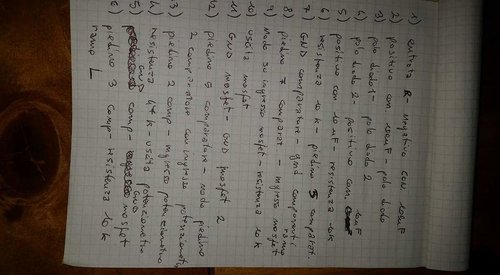 1) entrata R - negativo con 100uF
2) positivo con 100uF - polo diodo
3) polo diodo 1 - polo diodo 2
4) polo diodo 2 - positivo con 10uF
5) positivo con 10uF - resistenza 10k
6) resistenza 10k - piedino 5 comparat.
7) GND comparatore - gnd componenti
8) piedino 7 comparat. - ingresso mosfet ramo
9) Nodo su ingresso mosfet - resistenza 10k
10) uscita mosfet
11) GND mosfet - GND mosfet 2
12) piedino 5 comparatore - nodo piedino
2 comparatore con ingresso potenziometro
13) piedino 2 comp - ingresso potenziometro
14) resistenza 47k - uscita potenziometro
15) GND comp - GND mosfet
16) piedino 3 comp - resistenza 10k
ramo L